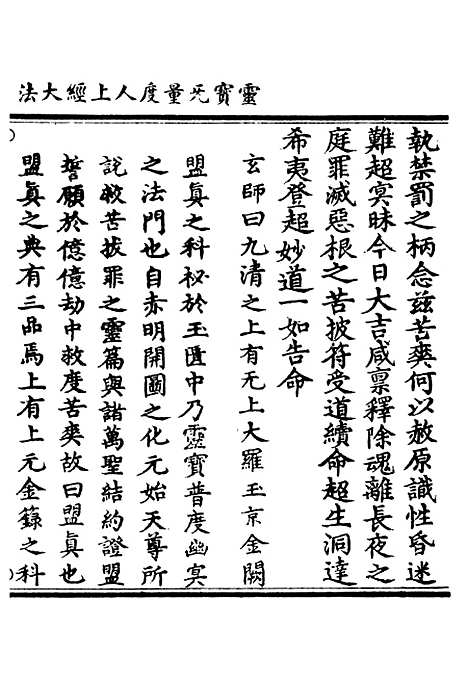 靈寶无量度人上經大法
執禁罰之柄念茲苦爽何以赦原識性昏迷
難超冥昧今日大吉咸稟釋除魂離長夜之
庭罪滅惡根之苦披符受道續命超生洞達
希夷登超妙道一如告命
玄師曰九清之上有无上大羅玉京金闕
盟真之科祕於玉匱中乃靈寶普度幽冥
之法門也自赤明開圖之化元始天尊所
說救苦拔罪之靈篇與諸萬聖結約證盟
誓願於億億劫中救度苦爽故曰盟真也
盟真之典有三品焉上有上元金籙之科